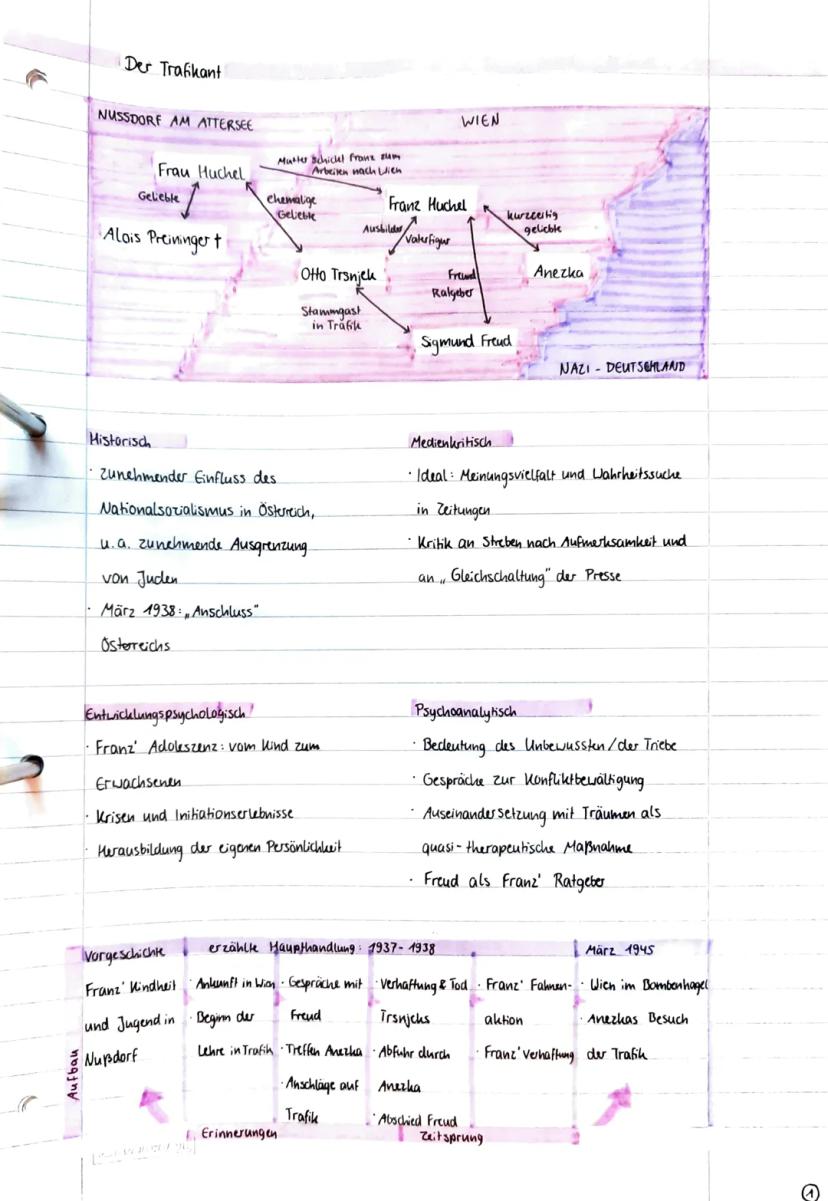 Der Trafikant
NUSSDORF AM ATTERSEE
WIEN
Frau Huchel
Mutter schickt Franz zum
Arbeiten nach Wien
Geliebte
ehemalige
Geliebte
Franz Huchel
kurzzeitig
geliebte
Alois Preininger †
Ausbilder
Vaterfigur
Otto Trsnjek
Freund
Ratgeber
Anezka
Stammgast
in Trafik
Sigmund Freud
NAZI - DEUTSCHLAND
Historisch
· zunehmender Einfluss des
Nationalsozialismus in Österreich,
u.a. zunehmende Ausgrenzung
von Juden
· März 1938: „Anschluss"
Österreichs
Medienkritisch
· Ideal: Meinungsvielfalt und Wahrheitssuche
in Zeitungen
· Kritik an Streben nach Aufmerksamkeit und
an „Gleichschaltung" der Presse
Entwicklungspsychologisch
· Franz' Adoleszenz: vom Kind zum
Erwachsenen
· Krisen und Initiationserlebnisse
· Herausbildung der eigenen Persönlichkeit
Psychoanalytisch
· Bedeutung des Unbewussten / der Triebe
· Gespräche zur Konfliktbewältigung
· Auseinandersetzung mit Träumen als
quasi-therapeutische Maßnahme
· Freud als Franz' Ratgeber
Aufbau
Vorgeschichte
Franz' Kindheit
und Jugend in
Nußdorf
erzählte Haupthandlung: 1937-1938
· Ankunft in Wien
· Beginn der
Lehre in Trafik
· Gespräche mit
Freud
· Treffen Anezka
· Anschläge auf
Trafik
· Verhaftung & Tod
Trsnjeks
· Abfuhr durch
Anezka
· Abschied Freud
· Franz' Fahnen-
aktion
· Franz' Verhaftung
März 1945
· Wien im Bombenhagel
· Anezkas Besuch
der Trafik
Erinnerungen
Zeitsprung
1